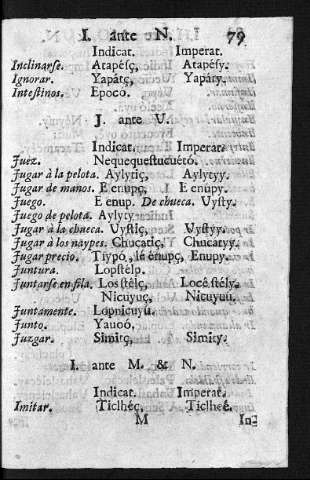 I. ante N. 79
Indicat. Imperat.
Inclinarse. Atapésç, Atapésy.
Ignorar. Yapátç, Yapáty.
Intestinos. Epoco.
J. ante U.
Indicat. Imperat.
Juez. Nequequestucuétó.
Jugar à la pelota. Aylytiç, Aylytyy.
Jugar de manos. E enupç, I. E enupy.
Juego. E enup. De chueca. Uysty.
Juego de pelota. Aylyty.
Jugar à la chueca. Uystiç, Uystyy.
Jugar à los naypes. Chucatiç, Chucatyy.
Jugar precio. Tiypó, lé énupç, Enupy.
Juntura. Lopstélp.
Juntarse en fila. Los stélç, Locé stély.
Nicuyuç, Nicuyuú.
Juntamente. Lopnicuyu.
Junto. Yauoó,
Juzgar. Simitç, Simity.
I. ante M. & N.
Indicat. Imperat.
Imitar. Ticlhéç, Ticlheé.
M